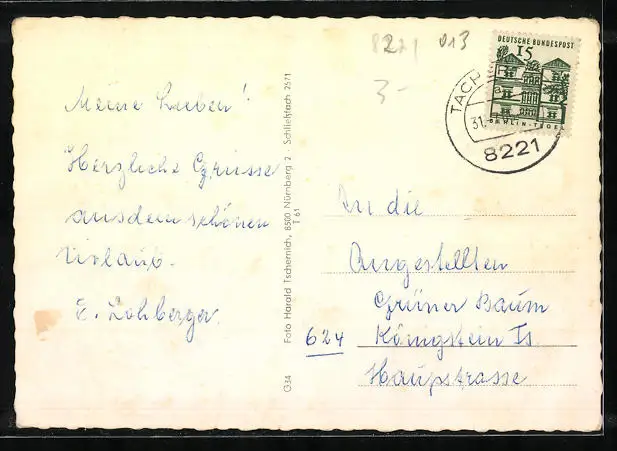 8221 013
3-
DEUTSCHE BUNDESPOST
15
BERLIN-TEGEL
TACH
31.
a
8221
Meine Lieben!
Herzliche Grüsse
aus dem schönen
Urlaub.
E. Lohberger.
G34 Foto Harald Tschernich, 8500 Nürnberg 2 · Schließfach 2571
T 61
An die
Angestellten
Grüner Baum
624 Königstein Ts.
Hauptstrasse